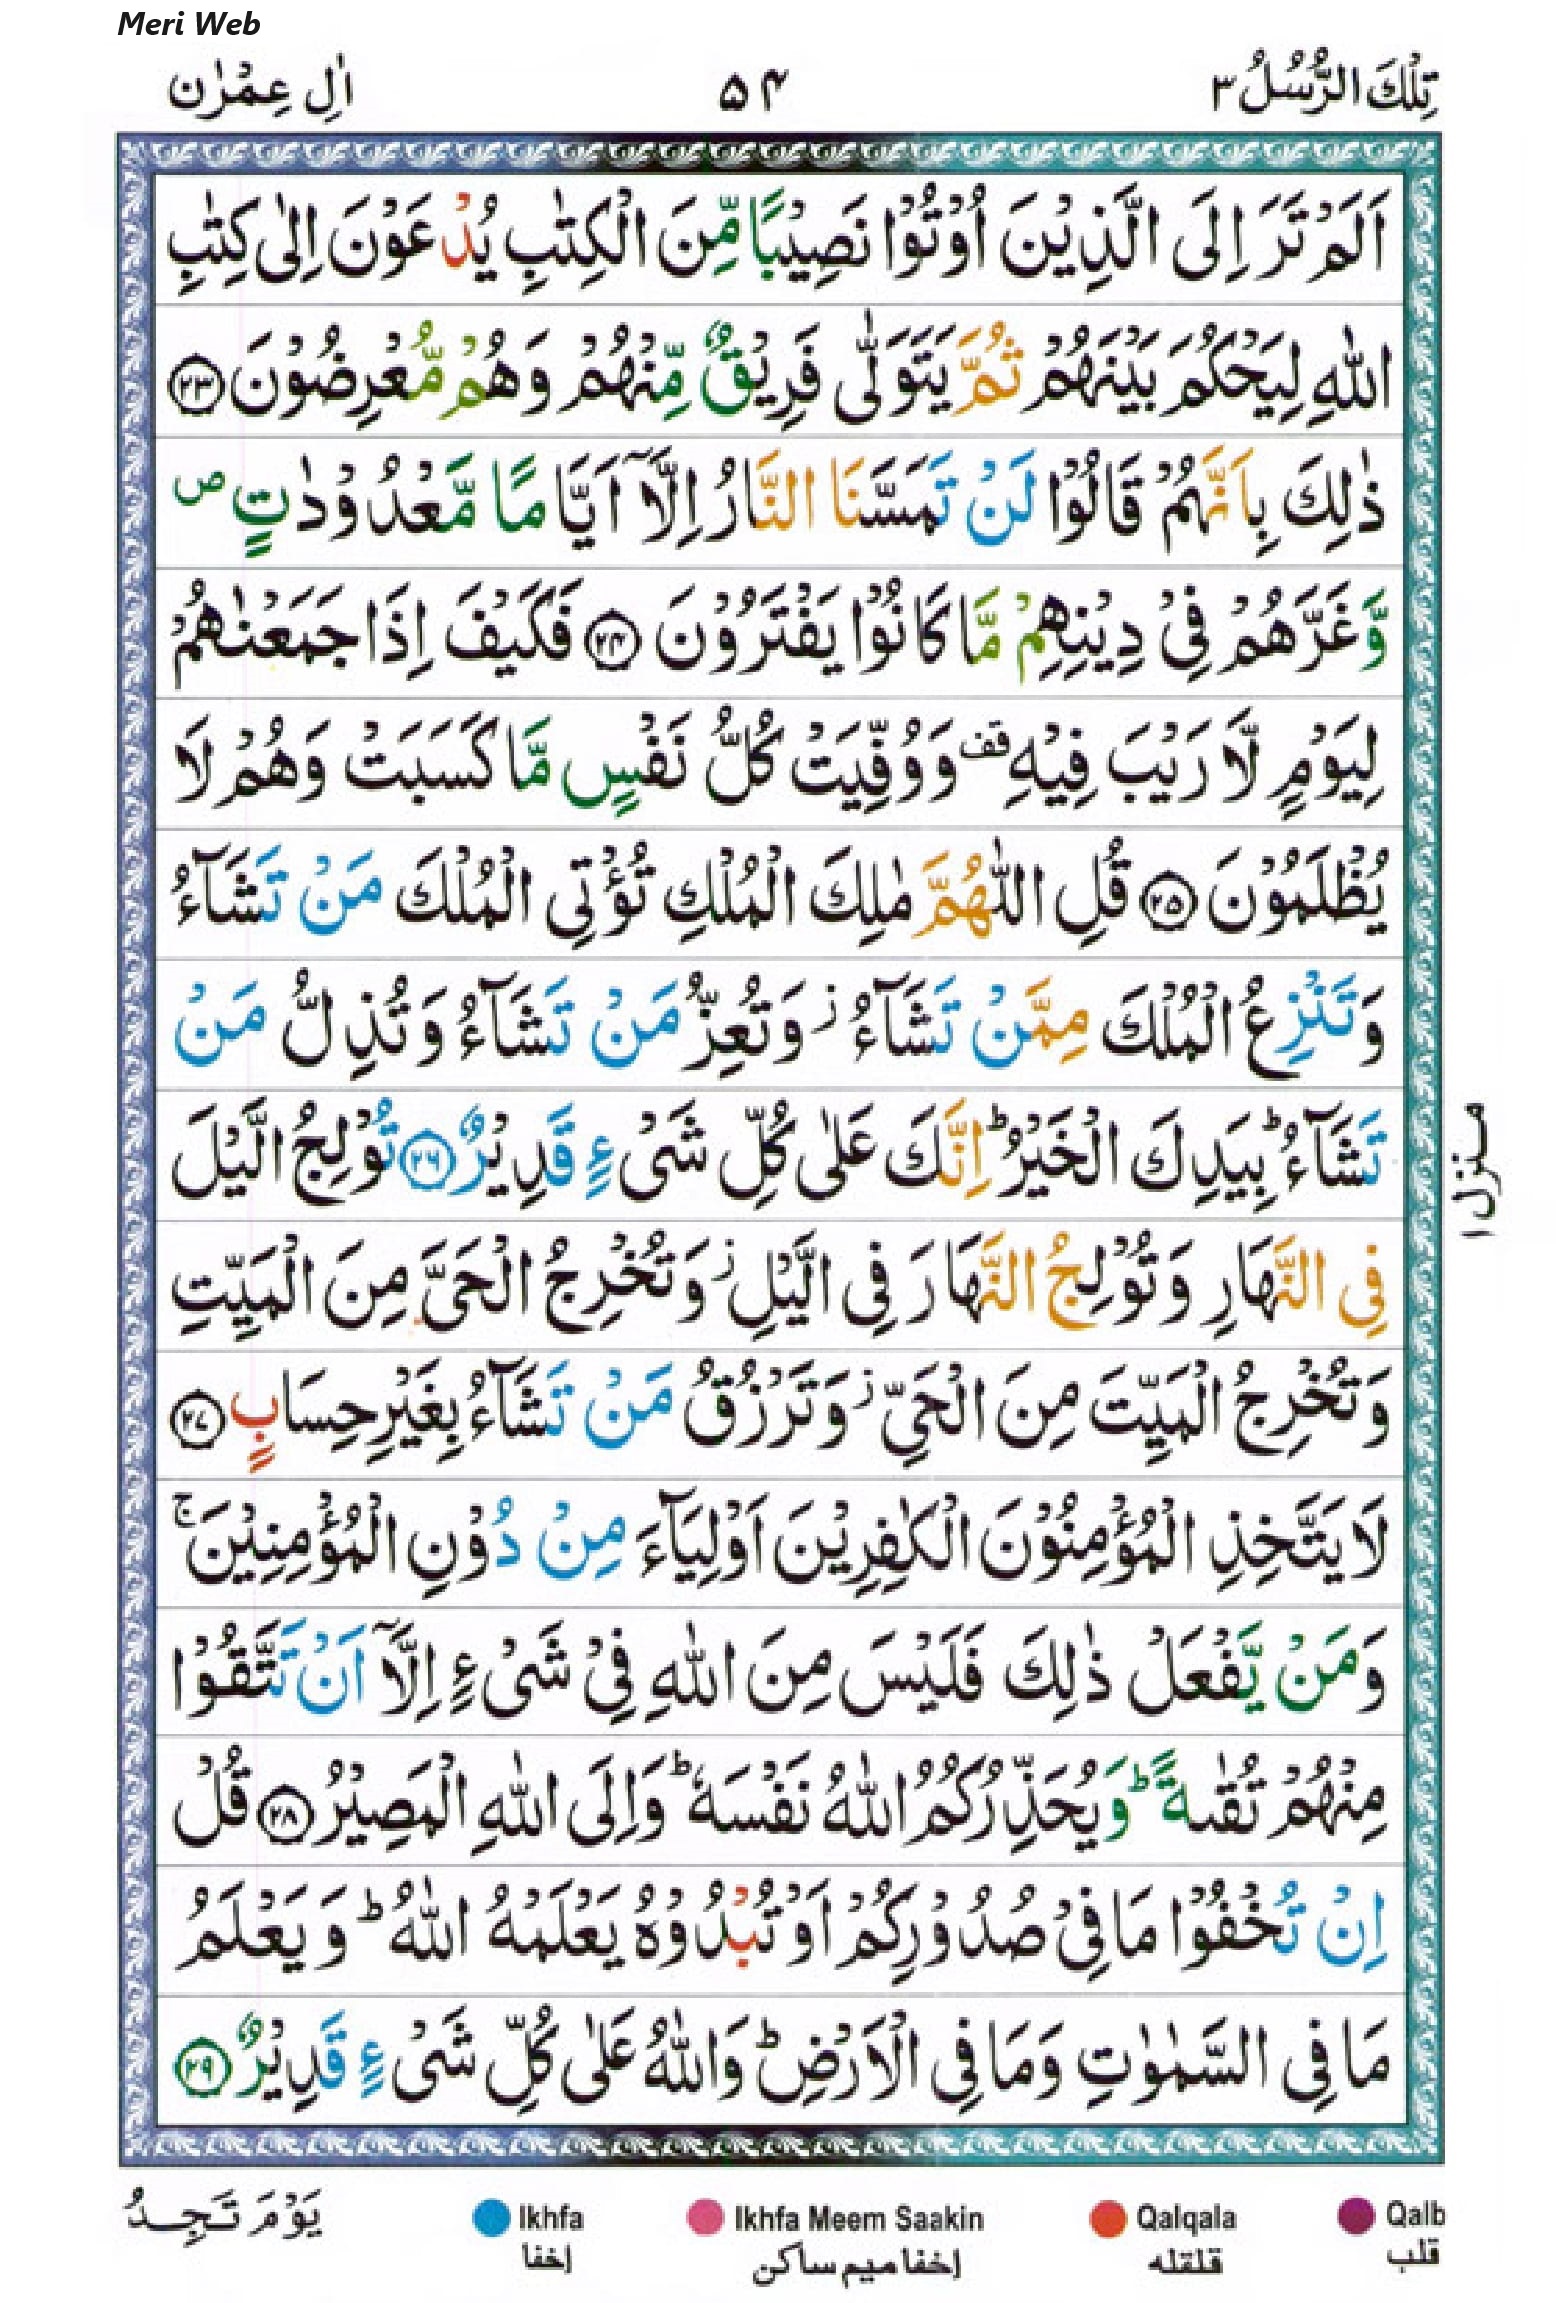 Meri Web
تِلْكَ الرُّسُلُ ٣
۵۴
اٰلِ عِمْرٰن
اَلَمْ تَرَ اِلَى الَّذِيْنَ اُوْتُوْا نَصِيْبًا مِّنَ الْكِتٰبِ يُدْعَوْنَ اِلٰى كِتٰبِ
اللّٰهِ لِيَحْكُمَ بَيْنَهُمْ ثُمَّ يَتَوَلّٰى فَرِيْقٌ مِّنْهُمْ وَهُمْ مُّعْرِضُوْنَ ﴿۲۳﴾
ذٰلِكَ بِاَنَّهُمْ قَالُوْا لَنْ تَمَسَّنَا النَّارُ اِلَّاۤ اَيَّامًا مَّعْدُوْدٰتٍ ص
وَّغَرَّهُمْ فِىْ دِيْنِهِمْ مَّا كَانُوْا يَفْتَرُوْنَ ﴿۲۴﴾ فَكَيْفَ اِذَا جَمَعْنٰهُمْ
لِيَوْمٍ لَّا رَيْبَ فِيْهِ قف وَوُفِّيَتْ كُلُّ نَفْسٍ مَّا كَسَبَتْ وَهُمْ لَا
يُظْلَمُوْنَ ﴿۲۵﴾ قُلِ اللّٰهُمَّ مٰلِكَ الْمُلْكِ تُؤْتِى الْمُلْكَ مَنْ تَشَآءُ
وَتَنْزِعُ الْمُلْكَ مِمَّنْ تَشَآءُ ز وَتُعِزُّ مَنْ تَشَآءُ وَتُذِلُّ مَنْ
تَشَآءُ ؕ بِيَدِكَ الْخَيْرُ ؕ اِنَّكَ عَلٰى كُلِّ شَىْءٍ قَدِيْرٌ ﴿۲۶﴾ تُوْلِجُ الَّيْلَ
فِى النَّهَارِ وَتُوْلِجُ النَّهَارَ فِى الَّيْلِ ز وَتُخْرِجُ الْحَىَّ مِنَ الْمَيِّتِ
وَتُخْرِجُ الْمَيِّتَ مِنَ الْحَىِّ ز وَتَرْزُقُ مَنْ تَشَآءُ بِغَيْرِ حِسَابٍ ﴿۲۷﴾
لَا يَتَّخِذِ الْمُؤْمِنُوْنَ الْكٰفِرِيْنَ اَوْلِيَآءَ مِنْ دُوْنِ الْمُؤْمِنِيْنَ ۚ
وَمَنْ يَّفْعَلْ ذٰلِكَ فَلَيْسَ مِنَ اللّٰهِ فِىْ شَىْءٍ اِلَّاۤ اَنْ تَتَّقُوْا
مِنْهُمْ تُقٰىةً ؕ وَيُحَذِّرُكُمُ اللّٰهُ نَفْسَهٗ ؕ وَاِلَى اللّٰهِ الْمَصِيْرُ ﴿۲۸﴾ قُلْ
اِنْ تُخْفُوْا مَا فِىْ صُدُوْرِكُمْ اَوْ تُبْدُوْهُ يَعْلَمْهُ اللّٰهُ ؕ وَيَعْلَمُ
مَا فِى السَّمٰوٰتِ وَمَا فِى الْاَرْضِ ؕ وَاللّٰهُ عَلٰى كُلِّ شَىْءٍ قَدِيْرٌ ﴿۲۹﴾
منزل ۱
يَوْمَ تَجِدُ
Ikhfa
إخفا
Ikhfa Meem Saakin
إخفا ميم ساكن
Qalqala
قلقله
Qalb
قلب